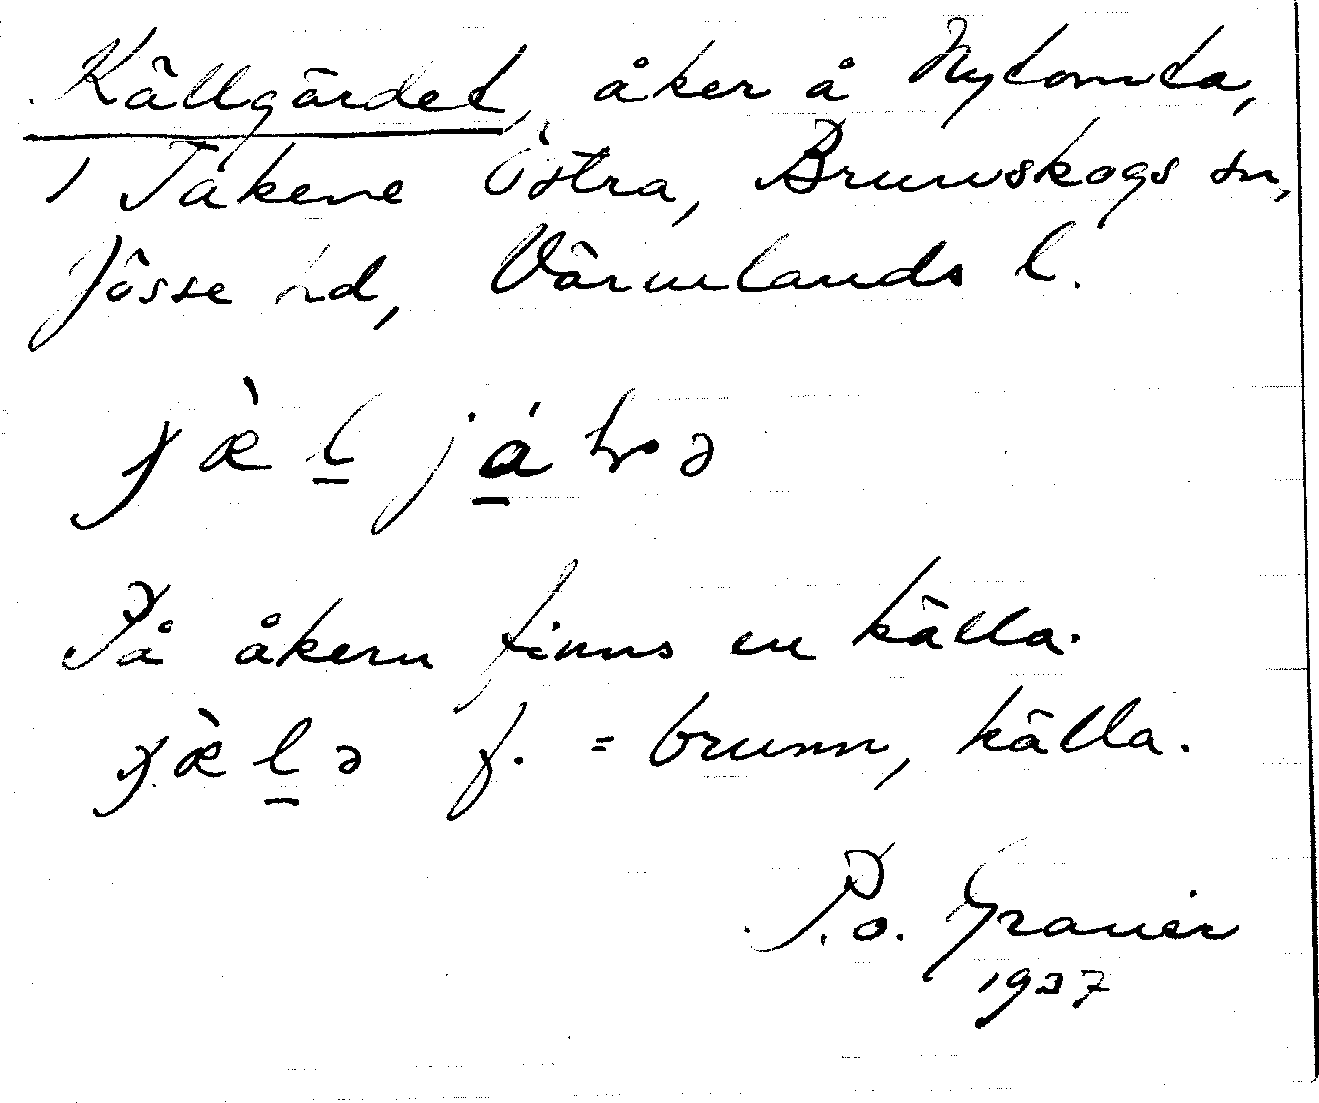 Källgärdet, åker å Nytomta,
1 Takene Östra, Brunskogs sn,
Jösse hd, Värmlands l.
På åkern finns en källa.
f. = brunn, källa.
P.o. Granér
1937